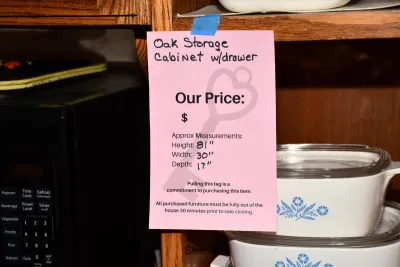 Oak Storage
Cabinet w/drawer
Our Price:
$
Approx Measurements:
Height: 81"
Width: 30"
Depth: 17"
Pulling this tag is a
commitment to purchasing this item.
All purchased furniture must be fully out of the
house 30 minutes prior to sale closing.
Popcorn
Time Cook
Defrost
Beverage
Power Level
Vegetable
1 2 3
Potato
4 5 6
Rice
7 8 9